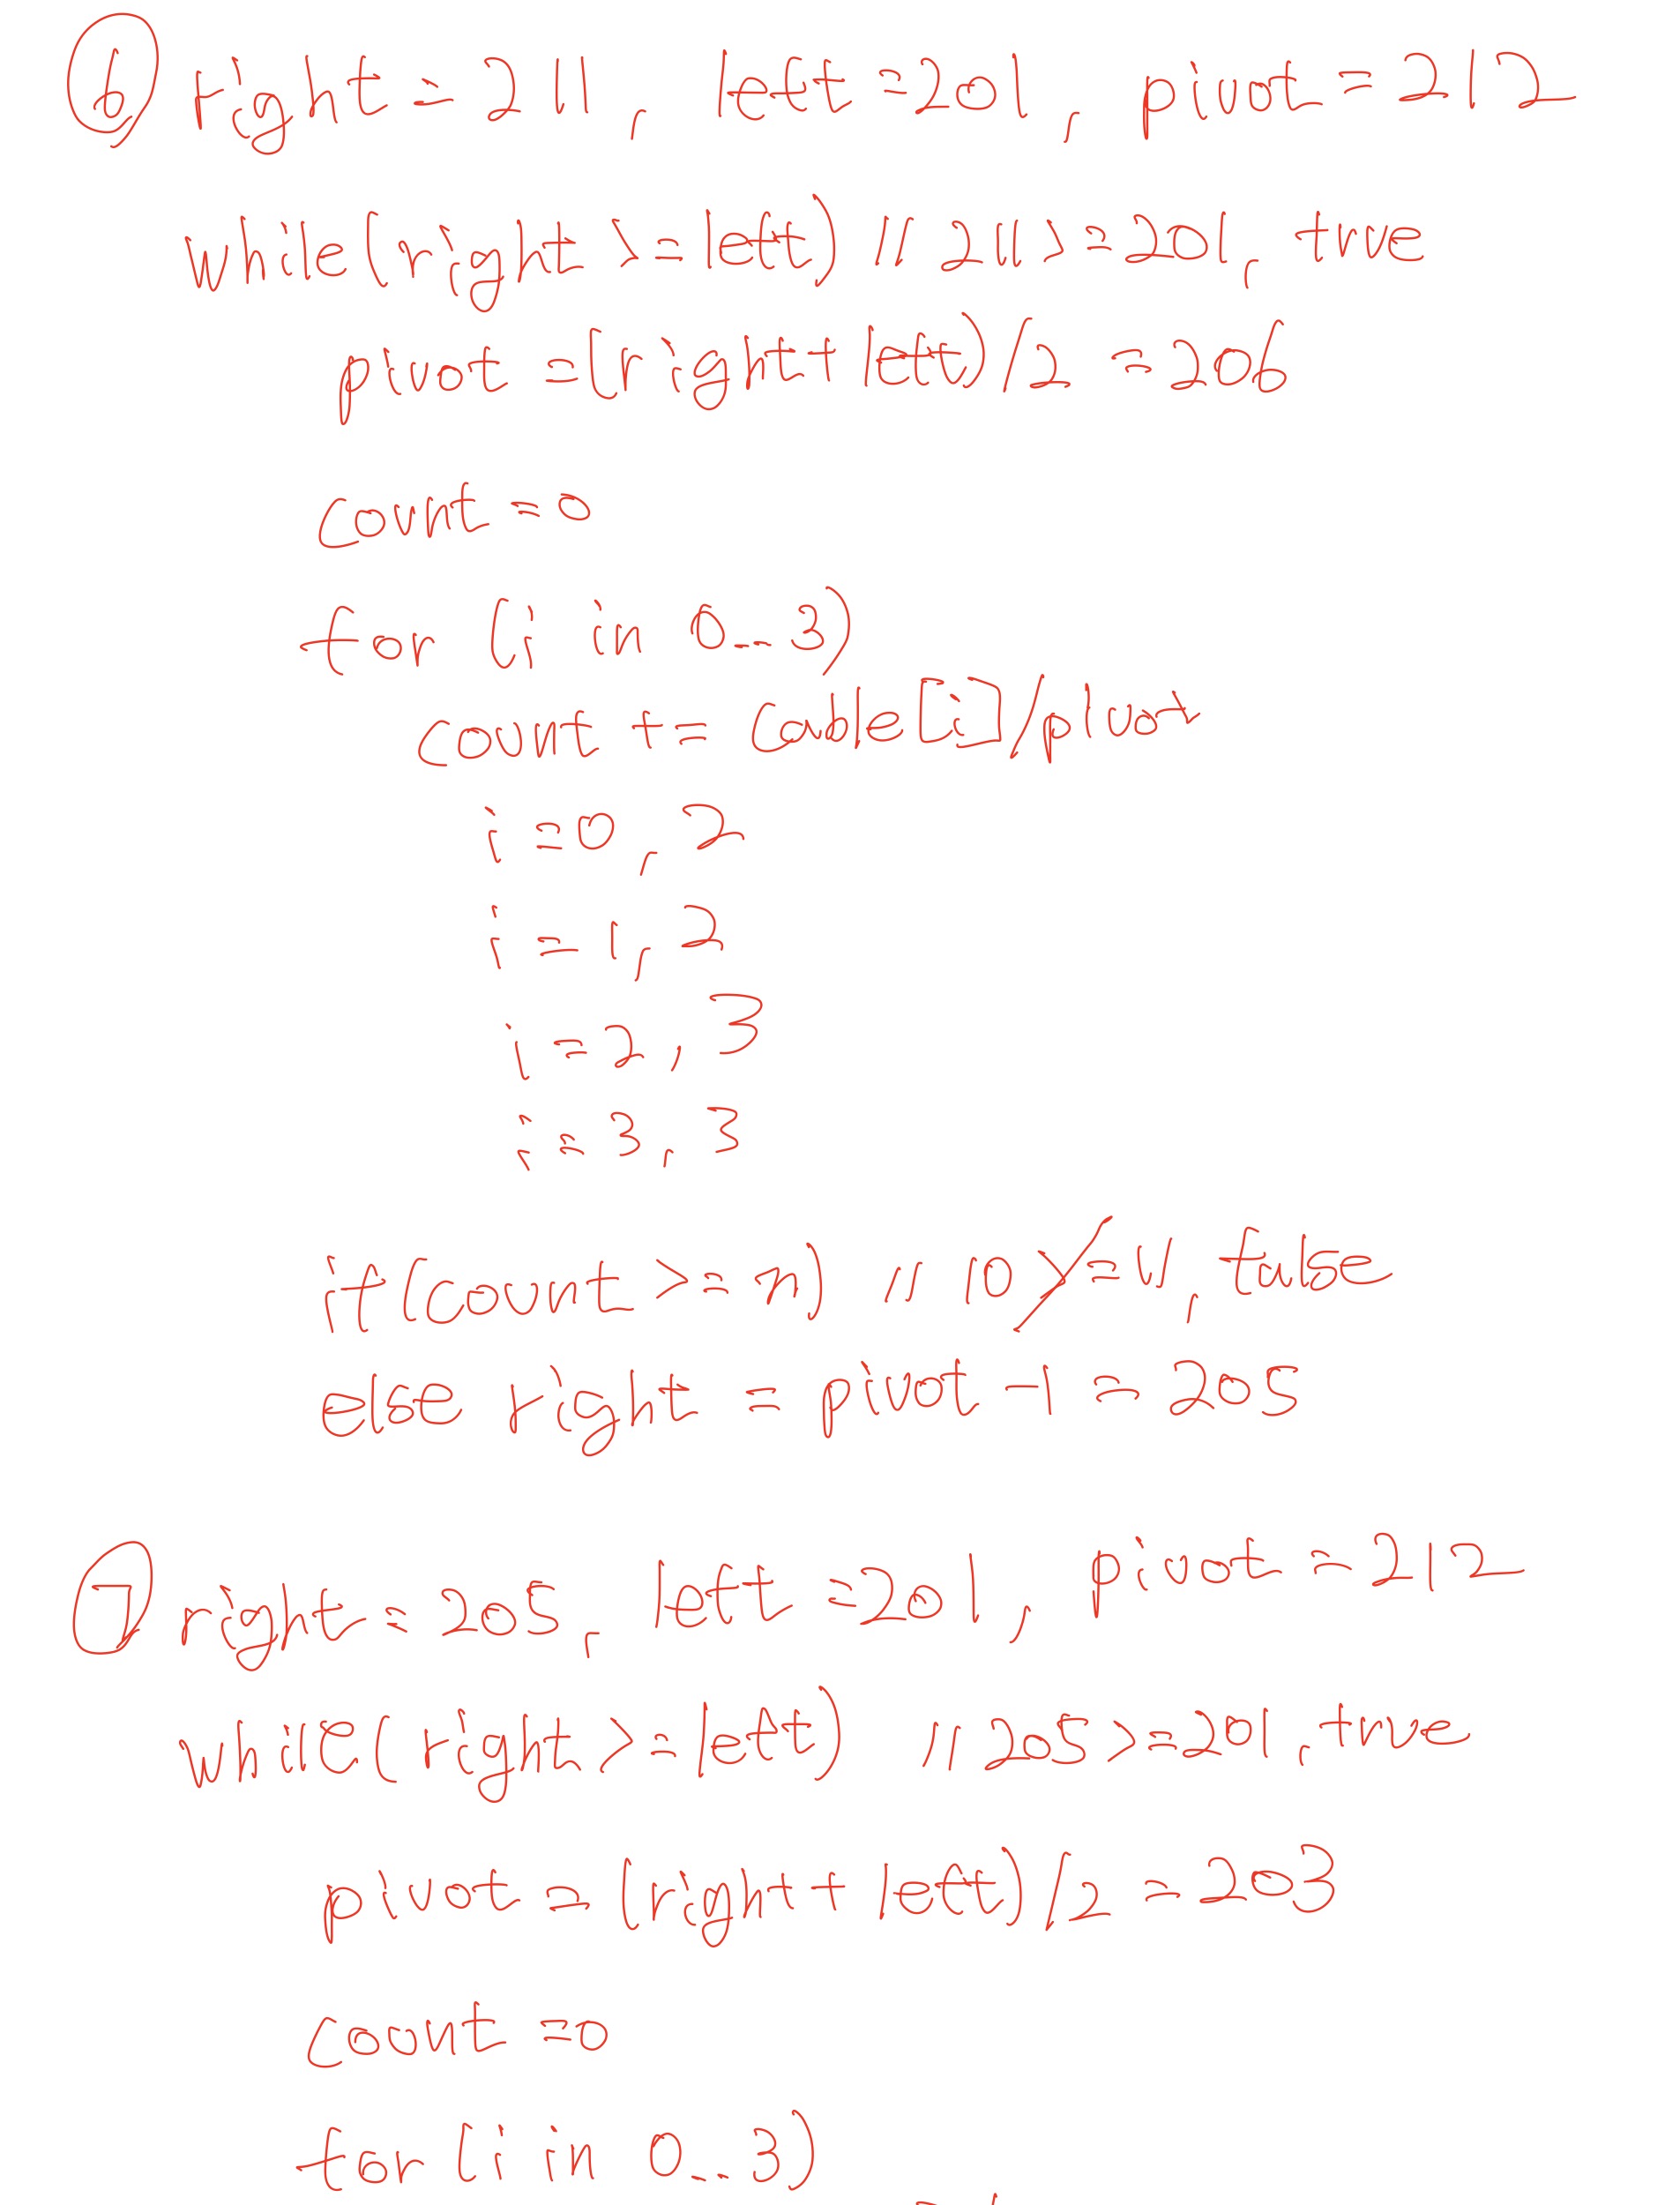 ⑥ right = 211, left = 201, pivot = 212
while(right >= left) // 211>=201, true
pivot = (right + left)/2 = 206
count = 0
for (i in 0...3)
count += cable[i]/pivot
i = 0, 2
i = 1, 2
i = 2, 3
i = 3, 3
if(count >= n) // 10 >= 11, false
else right = pivot - 1 = 205
⑦ right = 205, left = 201, pivot = 212
while(right >= left) // 205>=201, true
pivot = (right + left)/2 = 203
count = 0
for (i in 0...3)